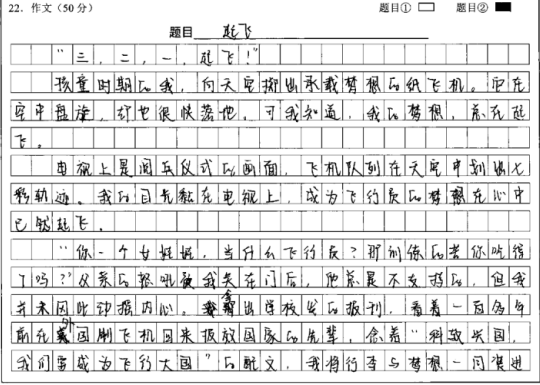 22. 作文(50分) 题目① 题目②
题目 起飞
"三,二,一,起飞!"
孩童时期的我,向天空掷出承载梦想的纸飞机。它在
空中盘旋,却也很快落地。可我知道,我的梦想,总在起
飞。
电视上是阅兵仪式的画面,飞机队列在天空中划出七
彩轨迹。我的目光黏在电视上,成为飞行员的梦想在心中
已然起飞。
"你一个女娃娃,当什么飞行员?那训练的苦你吃得
了吗?"父亲的怒吼被我关在门后,他总是不支持的,但我
并未因此动摇内心。我拿出学校发的报刊,看着一百多年
前在外国制飞机回来报效国家的先辈,念着"科技兴国,
我们要成为飞行大国"的配文,我将行李与梦想一同装进